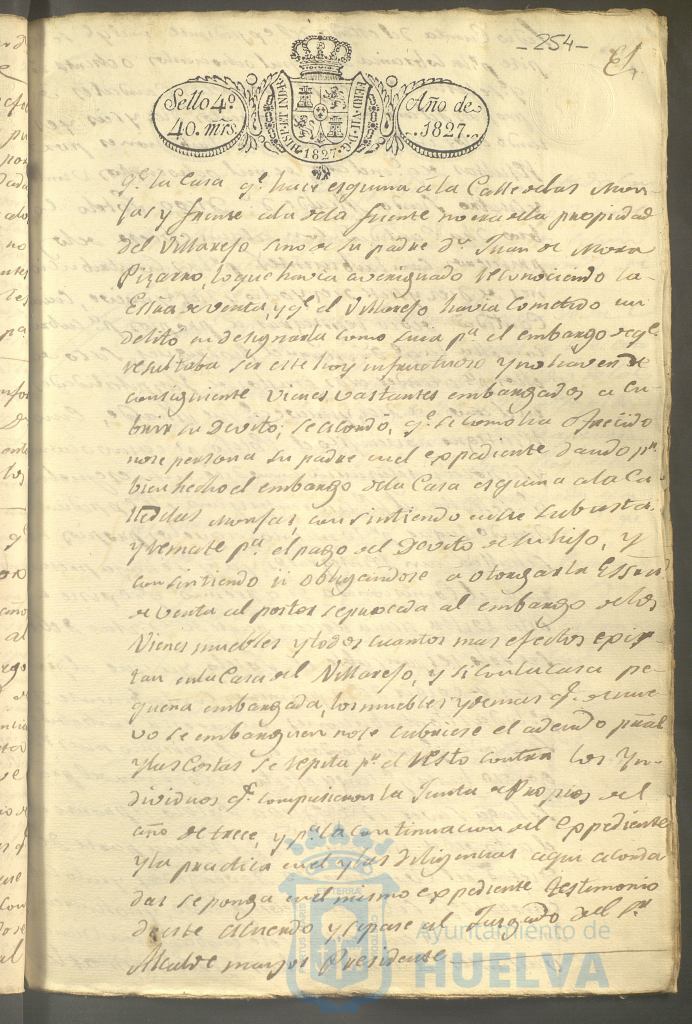 -254-
Sello 4º
40. mrs.
HISP. ET IND.
FERD. VII. D. G.
1827
Año de
1827.
qe. la Casa qe. hace esquina a la Calle delas Mon-
jas y frente ala dela fuente no era dela propiedad
del Villarejo sino de su padre Dn. Juan de Mora
Pizarro, lo que havia averiguado reconociendo la
Essra de venta, y qe. el Villarejo havia cometido un
delito en designarla como suia pa. el embargo de qe.
resultaba ser este hoy infructuoso y no haver de
consiguiente vienes vastantes embargados a cu-
brir su Devito; se acordó, qe. si como ha ofrecido
no se persona su padre en el expediente dando pr.
bien hecho el embargo dela Casa esquina a la Ca
lle delas Monjas, consintiendo en su subasta
y remate pa. el pago del Devito de su hijo, y
consintiendo u obligandose a otorgar la Essra
de venta al postor se proceda al embargo delos
Vienes muebles y todos cuantos mas efectos exis-
tan en la Casa del Villarejo, y si con la casa pe-
queña embargada, los muebles y demas qe. de nue-
vo se embarguen no se cubriese el adeudo pral
y las Costas se repita pr. el resto contra los Yn-
dividuos qe. compusieron la Junta de Propios del
año de trece, y pa. la continuacion del expediente
y la practica en el y las diligencias aqui acorda
das se ponga en el mismo expediente testimonio
de este acuerdo y se pase al Juzgado del Sr.
Alcalde mayor Presidente
Ayuntamiento de
HUELVA